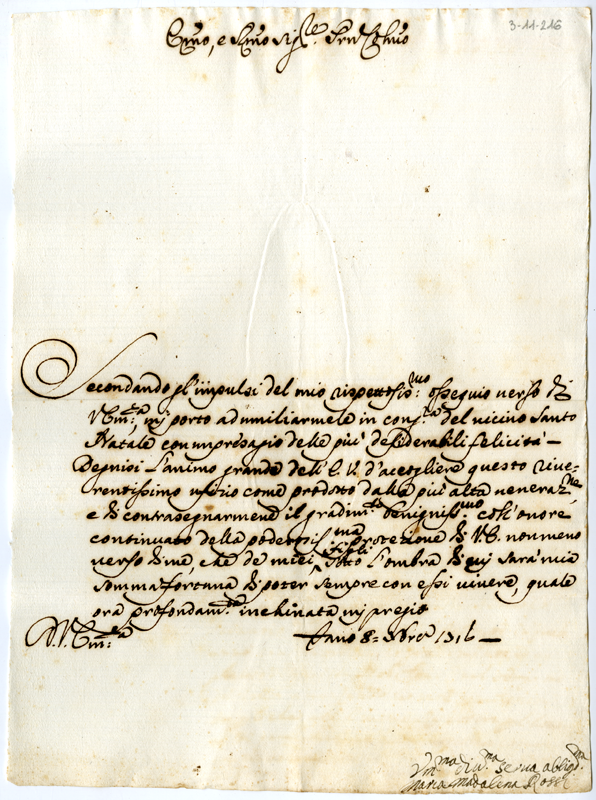 3-11-216
Emo, e Rmo Sig.re Prne Colmo
Secondando gl'impulsi del mio rispettosis.mo osseguio verso di
V Em.za, mi porto ad umiliarmele in cong.ra del vicino Santo
Natale con un presagio delle più desiderabili felicità
Degnisi l'animo grande dell'E. V. d'accogliere questo rive-
rentissimo ufizio come prodotto dalla più alta veneraz.ne
e di contrasegnarmene il gradim.to benignis.mo coll'onore
continuato della poderosis.ma protezione di V E. non meno
verso di me, che de miei figli sotto l'ombra di cui sarà mia
somma fortuna di poter sempre con essi vivere, quale
ora profondam.te inchinata mi pregio
D. V. Em.za
Fano 8 Xbre
Um.ma Div.ma Serva obligo.ma
Maria Madalena Rossi